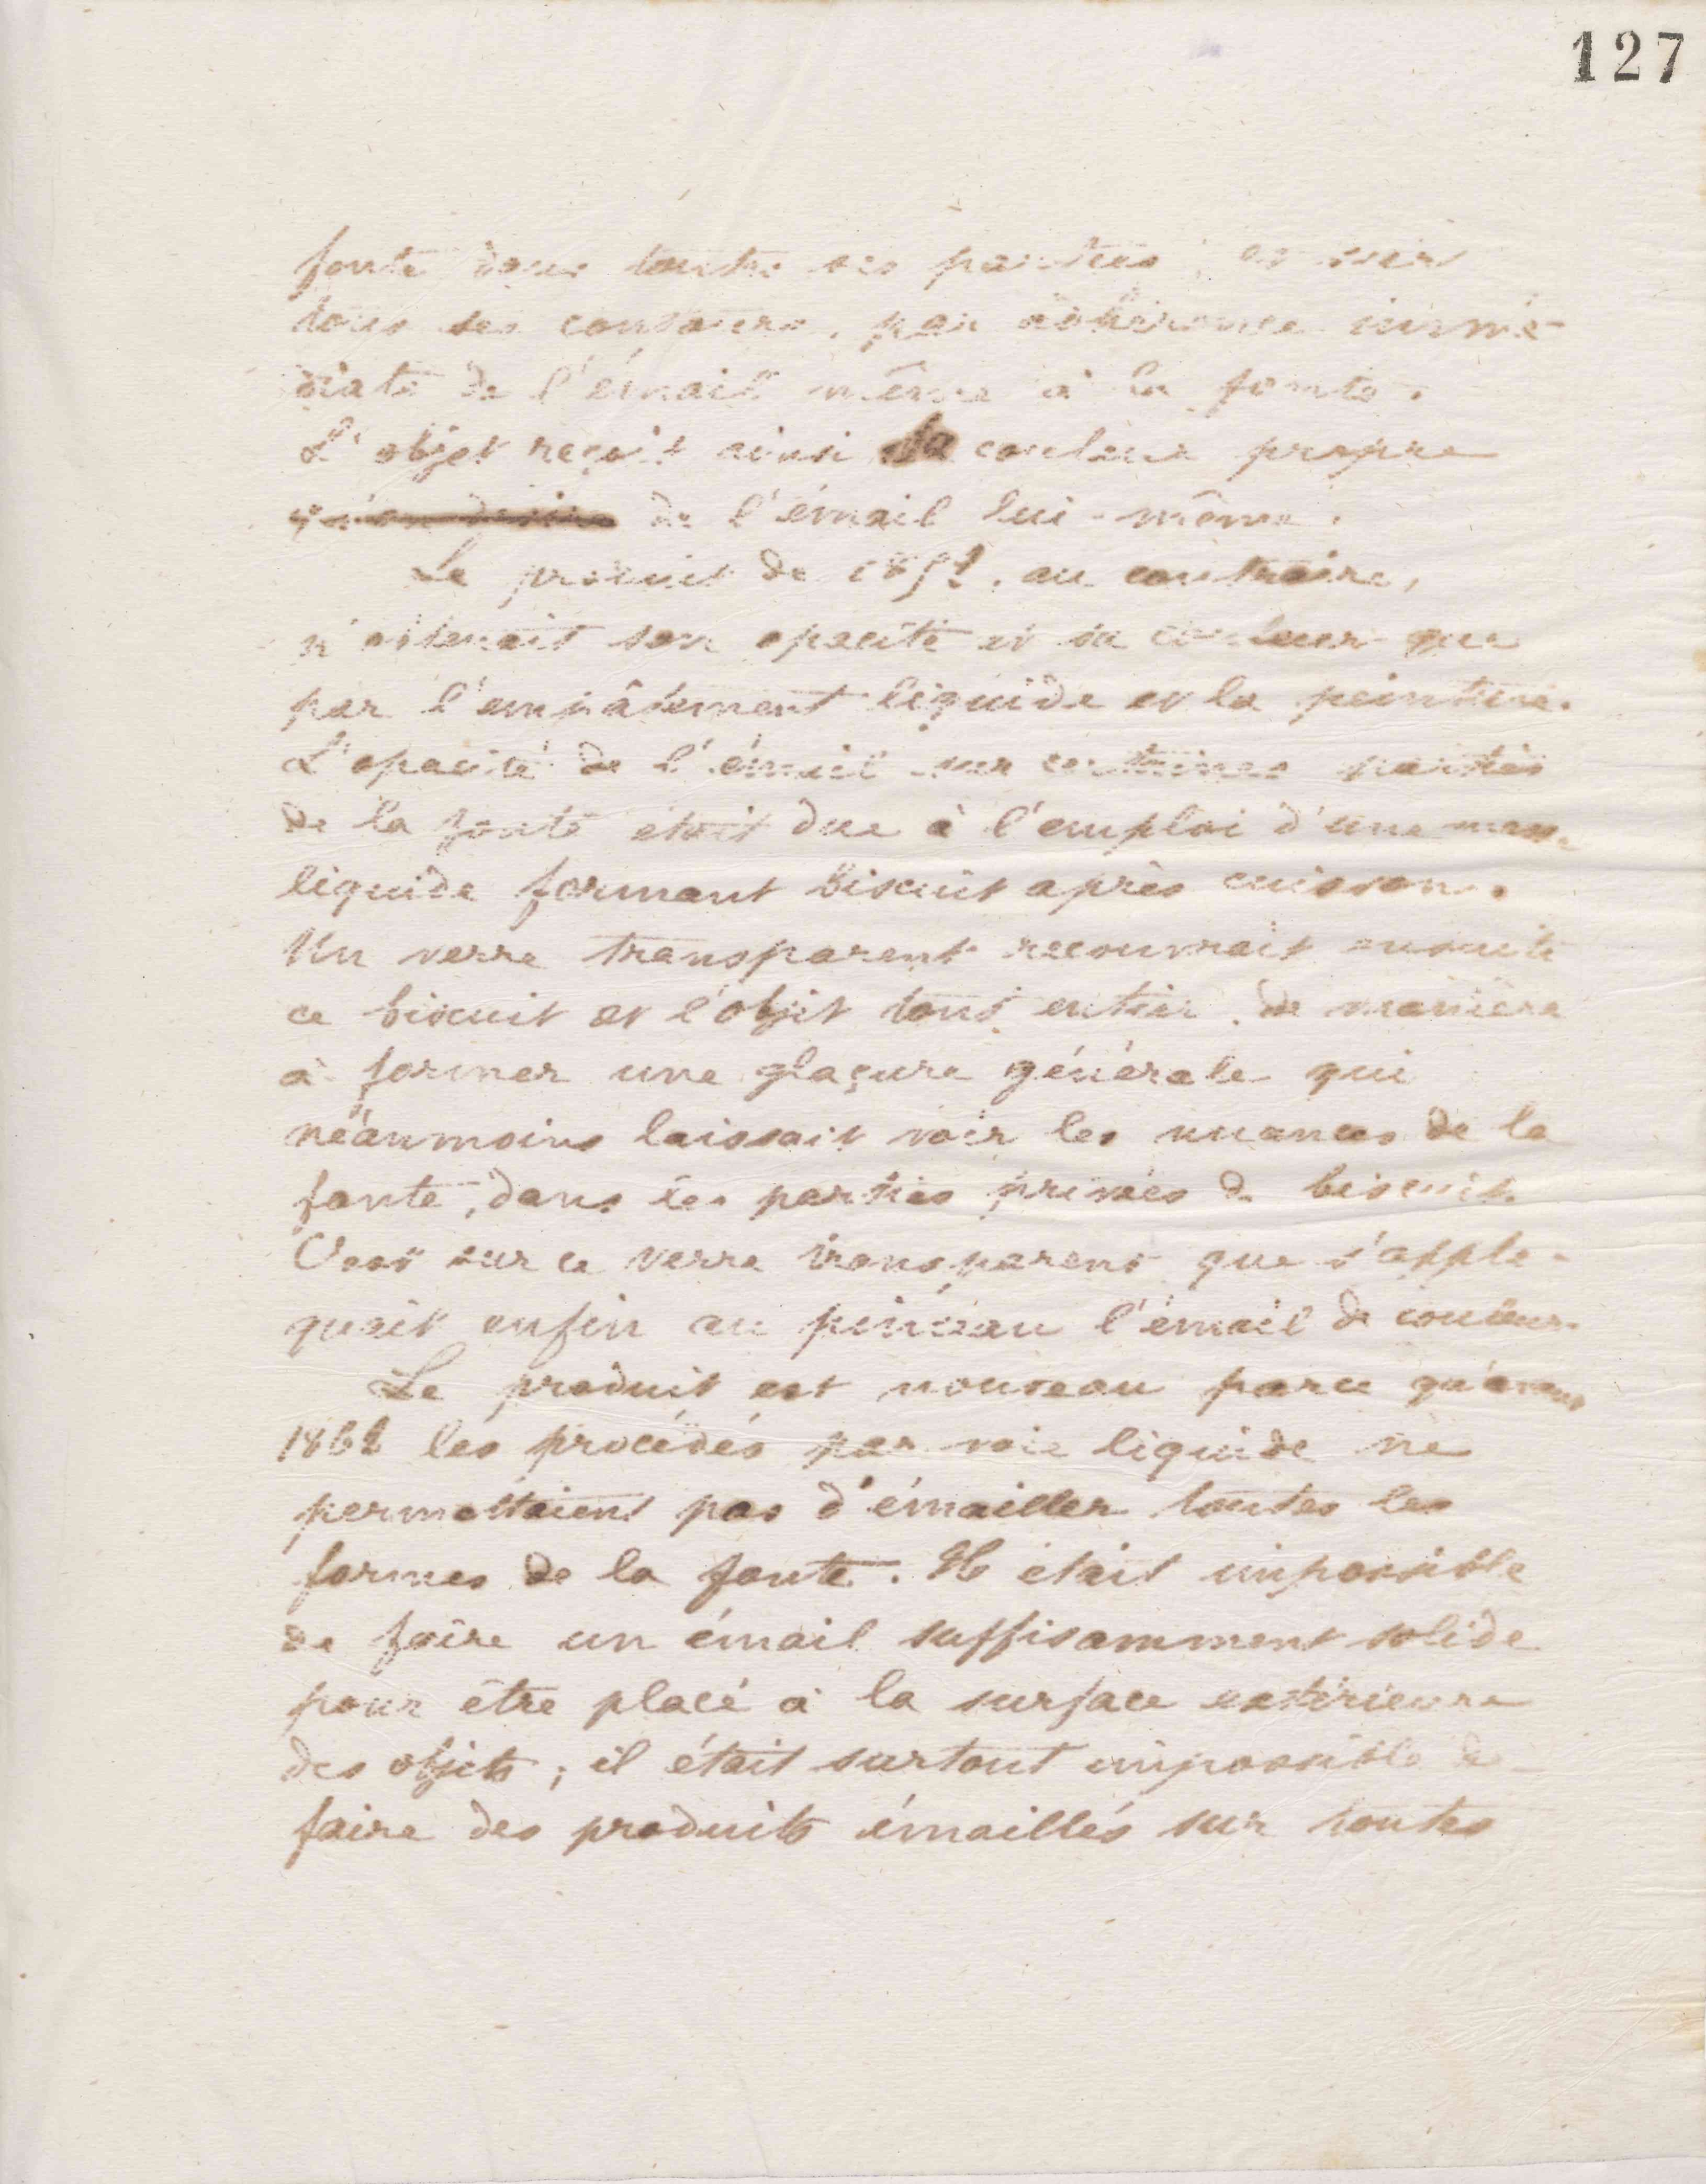 127
fonte dans toutes ses parties, et sur
tous ses contours, par adhérence immé-
diate de l'émail même à la fonte.
L'objet reçoit ainsi la couleur propre
de l'émail lui-même.
Le produit de 185, au contraire,
n'obtenait son opacité et sa couleur que
par l'empâtement liquide et la peinture.
L'opacité de l'émail sur certaines parties
de la fonte était due à l'emploi d'une masse
liquide formant biscuit après cuisson.
Un verre transparent recouvrait ensuite
ce biscuit et l'objet tout entier, de manière
à former une glaçure générale qui
néanmoins laissait voir les nuances de la
fonte, dans les parties privées de biscuit.
C'est sur ce verre transparent que s'appli-
quait enfin au pinceau l'émail de couleur.
Le produit est nouveau parce qu'avant
1862 les procédés par voie liquide ne
permettaient pas d'émailler toutes les
formes de la fonte. Il était impossible
de faire un émail suffisamment solide
pour être placé à la surface extérieure
des objets ; il était surtout impossible de
faire des produits émaillés sur toutes